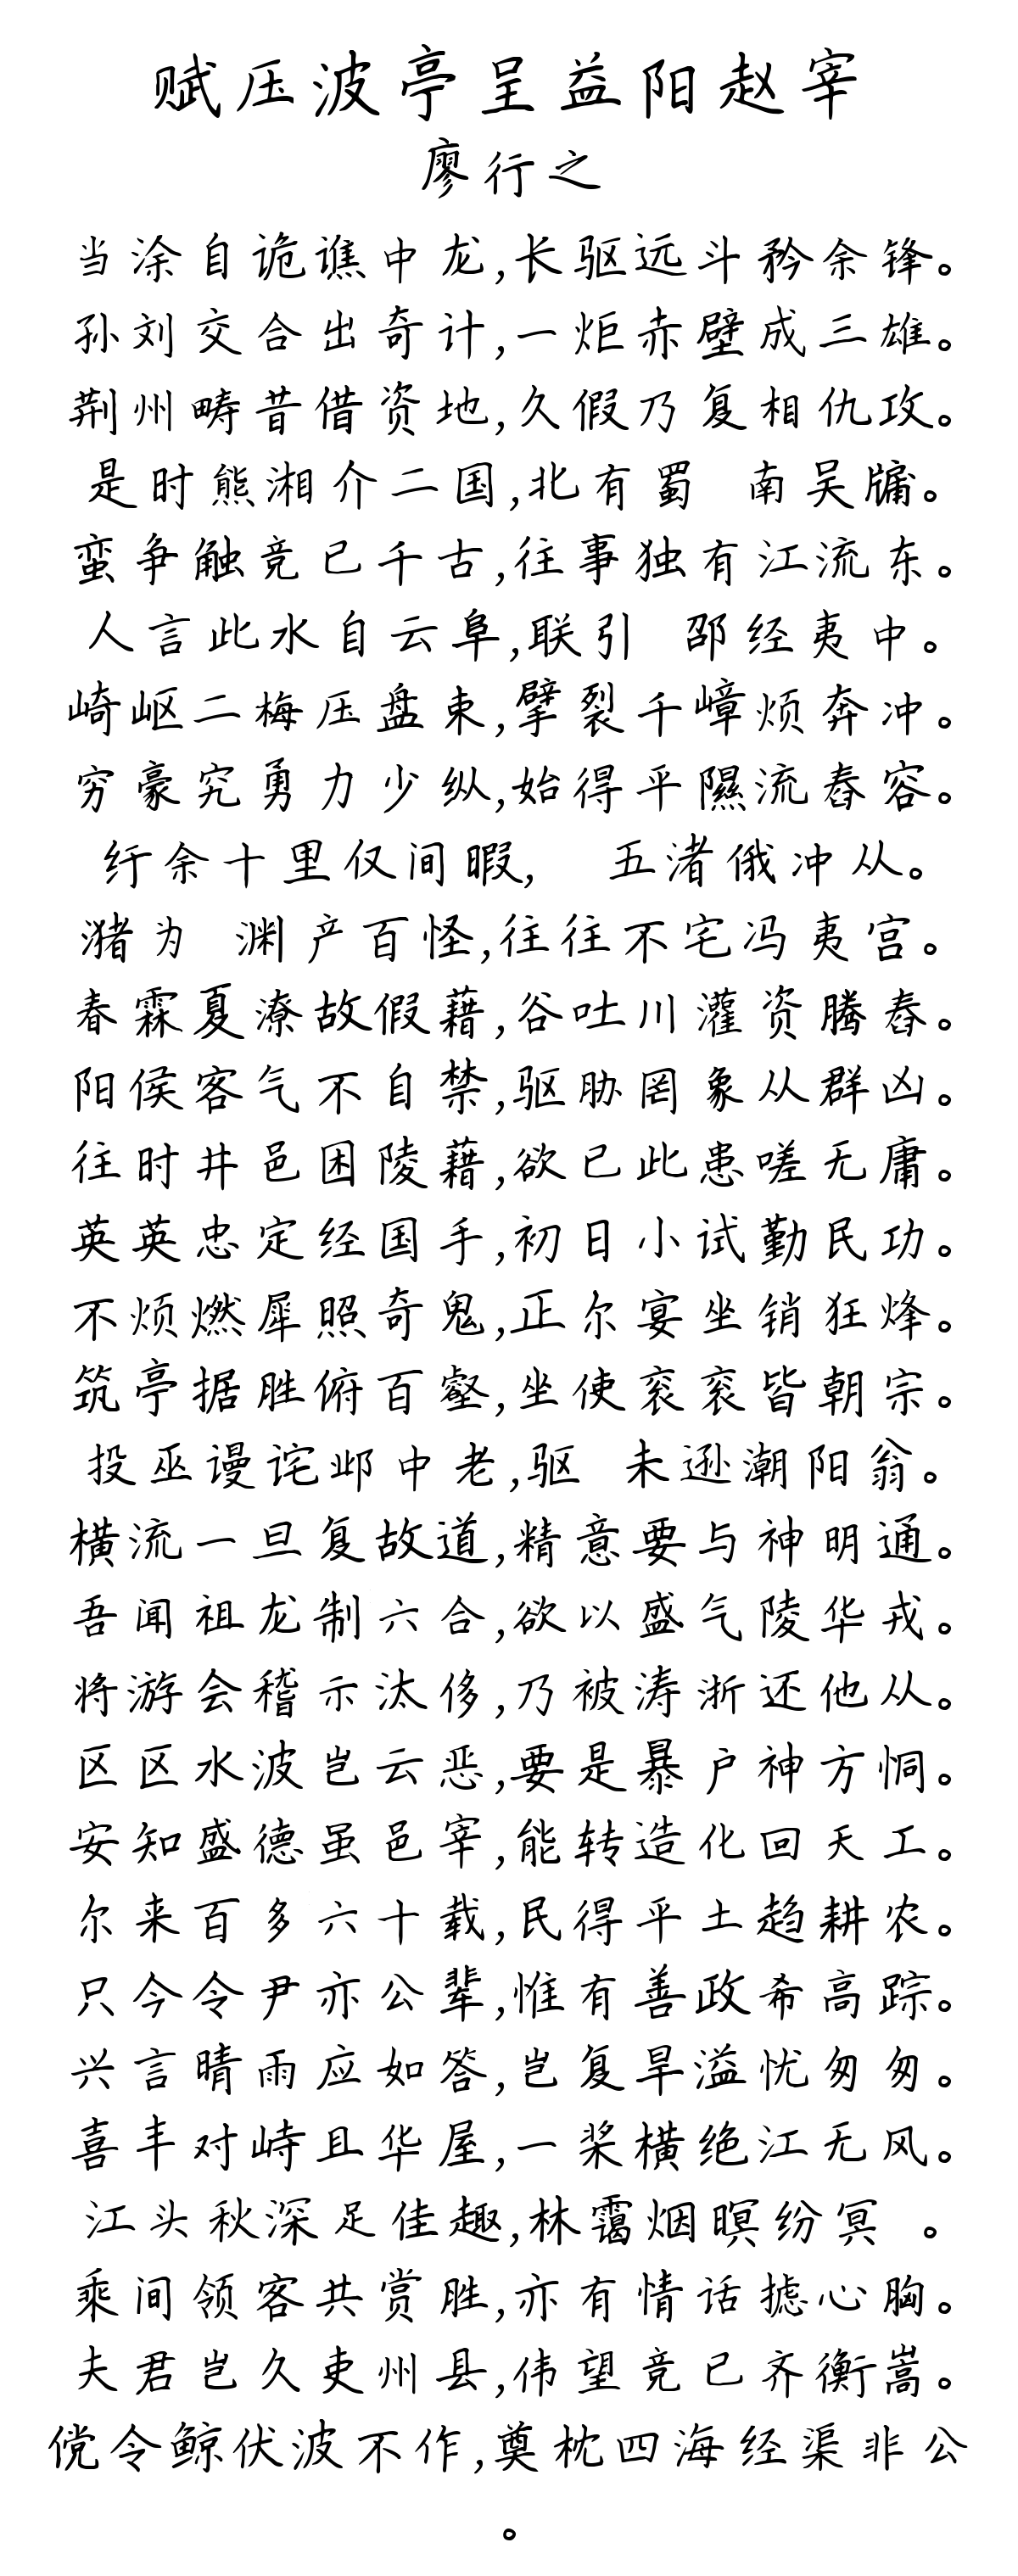 赋压波亭呈益阳赵宰
廖行之
当涂自诡谯中龙,长驱远斗矜余锋。
孙刘交合出奇计,一炬赤壁成三雄。
荆州畴昔借资地,久假乃复相仇攻。
是时熊湘介二国,北有蜀 南吴牗。
蛮争触竞已千古,往事独有江流东。
人言此水自云阜,联引 邵经夷中。
崎岖二梅压盘束,擘裂千嶂烦奔冲。
穷豪究勇力少纵,始得平隰流舂容。
纡余十里仅间暇, 五渚俄冲从。
潴为 渊产百怪,往往不宅冯夷宫。
春霖夏潦故假藉,谷吐川灌资腾舂。
阳侯客气不自禁,驱胁罔象从群凶。
往时井邑困陵藉,欲已此患嗟无庸。
英英忠定经国手,初日小试勤民功。
不烦燃犀照奇鬼,正尔宴坐销狂烽。
筑亭据胜俯百壑,坐使衮衮皆朝宗。
投巫谩诧邺中老,驱 未逊潮阳翁。
横流一旦复故道,精意要与神明通。
吾闻祖龙制六合,欲以盛气陵华戎。
将游会稽示汰侈,乃被涛浙还他从。
区区水波岂云恶,要是暴户神方恫。
安知盛德虽邑宰,能转造化回天工。
尔来百多六十载,民得平土趋耕农。
只今令尹亦公辈,惟有善政希高踪。
兴言晴雨应如答,岂复旱溢忧匆匆。
喜丰对峙且华屋,一桨横绝江无风。
江头秋深足佳趣,林霭烟暝纷冥 。
乘间领客共赏胜,亦有情话摅心胸。
夫君岂久吏州县,伟望竞已齐衡嵩。
傥令鲸伏波不作,奠枕四海经渠非公
。